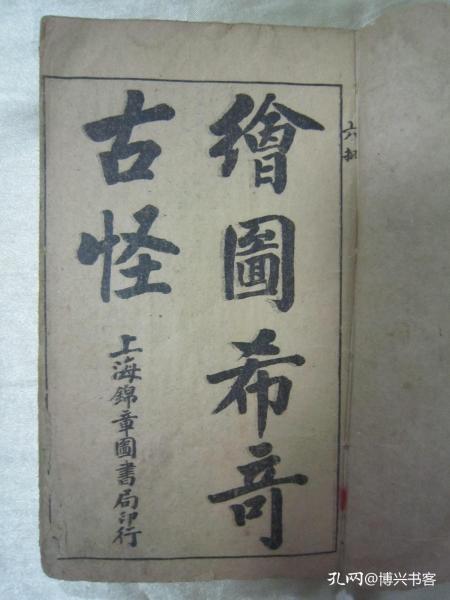 繪圖希奇
古怪
上海錦章圖書局印行
六
孔网@博兴书客